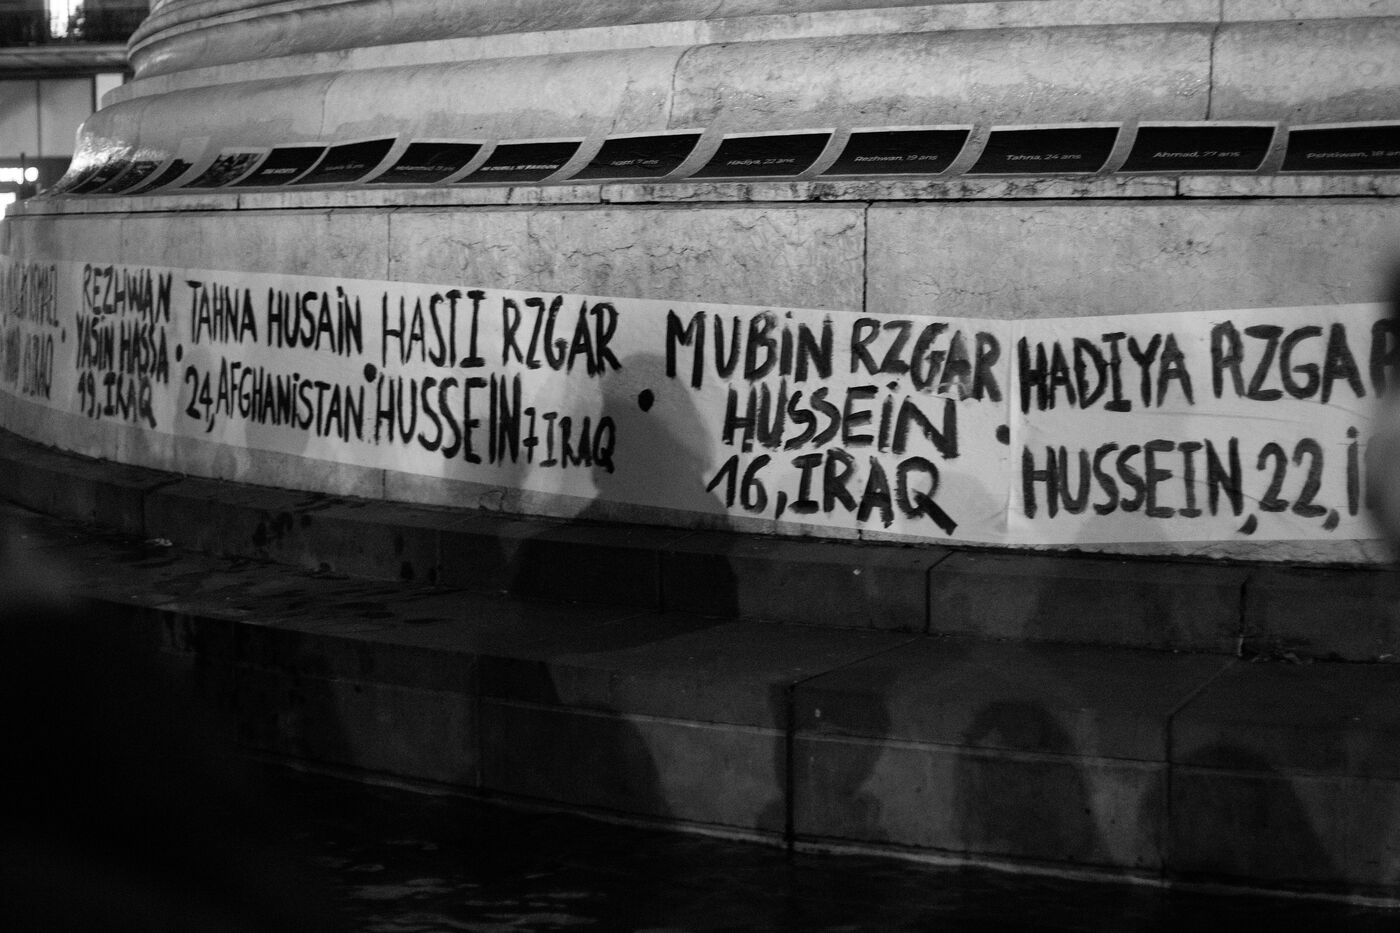 Hasti, 7 ans
Hadiya, 22 ans
Rezhwan, 19 ans
Tahna, 24 ans
Ahmad, 27 ans
Pshtiwan, 18 an
REZHWAN
YASIN HASSA
19, IRAQ
TAHNA HUSAiN
24, AFGHANiSTAN
HASTI RZGAR
HUSSEIN 7 IRAQ
MUBiN RZGAR
HUSSEiN
16, IRAQ
HADIYA RZGAR
HUSSEIN, 22, i